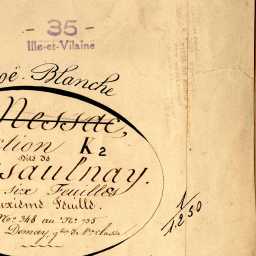 - 35 -
Ille-et-Vilaine
oë-Blanche
Messac,
tion K2
dite de
saulnay.
six Feuilles
uxième Feuille.
No. 348 au No. 735
Demay, gre de 1re classe
1/1250